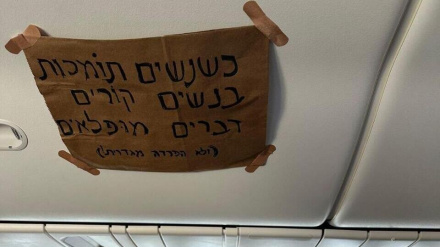 כשנשים תומכות
בנשים קורים
דברים מופלאים
(ולא הסברה מגדרית!)